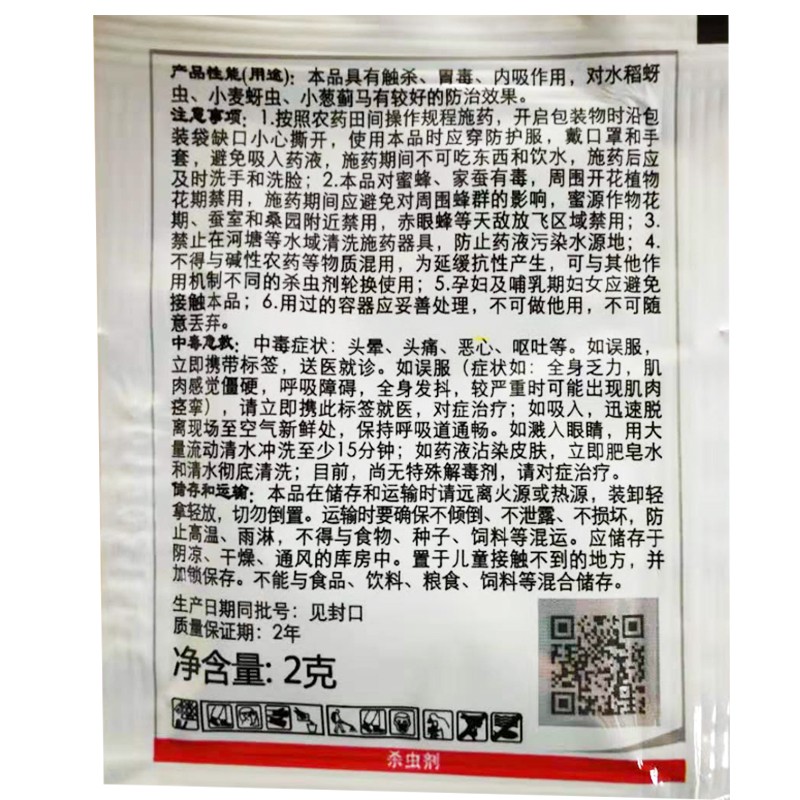 产品性能(用途)：本品具有触杀、胃毒、内吸作用，对水稻蚜
虫、小麦蚜虫、小葱蓟马有较好的防治效果。
注意事项：1.按照农药田间操作规程施药，开启包装物时沿包
装袋缺口小心撕开，使用本品时应穿防护服，戴口罩和手
套，避免吸入药液，施药期间不可吃东西和饮水，施药后应
及时洗手和洗脸；2.本品对蜜蜂、家蚕有毒，周围开花植物
花期禁用，施药期间应避免对周围蜂群的影响，蜜源作物花
期、蚕室和桑园附近禁用，赤眼蜂等天敌放飞区域禁用；3.
禁止在河塘等水域清洗施药器具，防止药液污染水源地；4.
不得与碱性农药等物质混用，为延缓抗性产生，可与其他作
用机制不同的杀虫剂轮换使用；5.孕妇及哺乳期妇女应避免
接触本品；6.用过的容器应妥善处理，不可做他用，不可随
意丢弃。
中毒急救：中毒症状：头晕、头痛、恶心、呕吐等。如误服，
立即携带标签，送医就诊。如误服（症状如：全身乏力，肌
肉感觉僵硬，呼吸障碍，全身发抖，较严重时可能出现肌肉
痉挛），请立即携此标签就医，对症治疗；如吸入，迅速脱
离现场至空气新鲜处，保持呼吸道通畅。如溅入眼睛，用大
量流动清水冲洗至少15分钟；如药液沾染皮肤，立即肥皂水
和清水彻底清洗；目前，尚无特殊解毒剂，请对症治疗。
储存和运输：本品在储存和运输时请远离火源或热源，装卸轻
拿轻放，切勿倒置。运输时要确保不倾倒、不泄露、不损坏，防
止高温、雨淋，不得与食物、种子、饲料等混运。应储存于
阴凉、干燥、通风的库房中。置于儿童接触不到的地方，并
加锁保存。不能与食品、饮料、粮食、饲料等混合储存。
生产日期同批号：见封口
质量保证期：2年
净含量：2克
杀虫剂